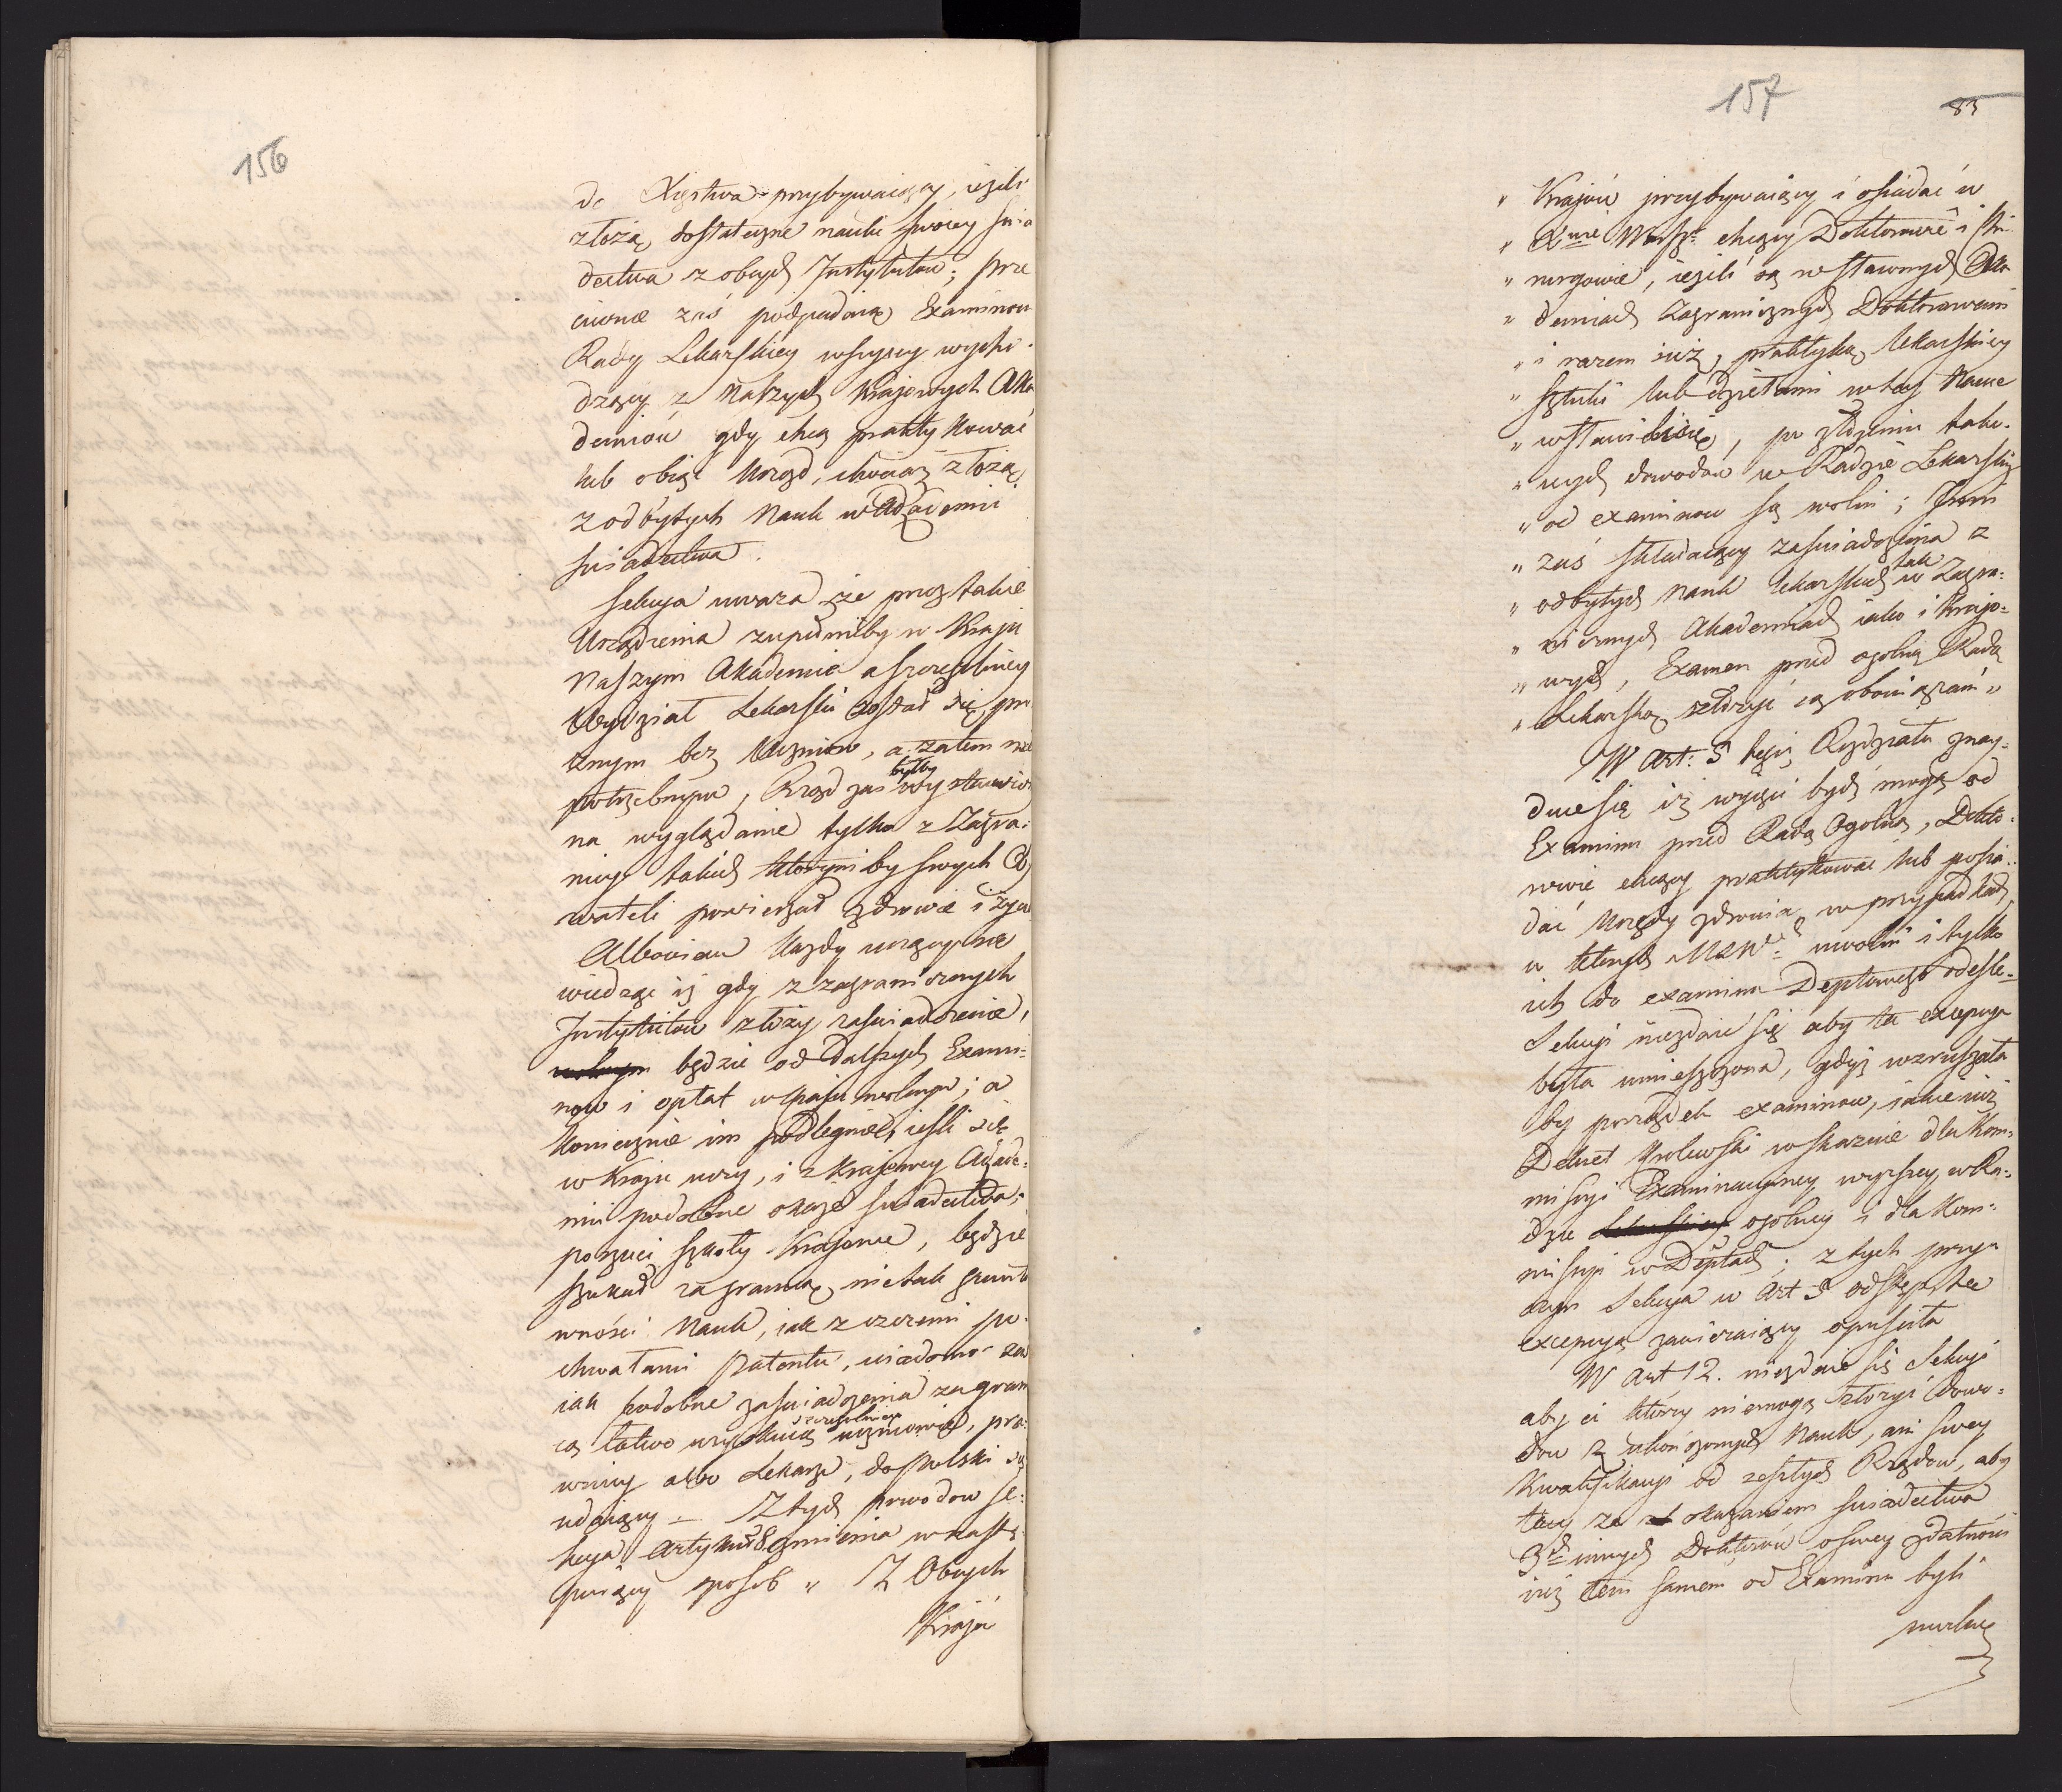 156
do Xięstwa przybywaiący, ieżeli
złożą dostateczne nauki swoiey świa
dectwa z obcych Instytutów; prze
ciwnie zaś podpadaią Examinowi
Rady Lekarskiey wszyscy wycho
dzący z naszych krajowych Aka
demiów gdy chcą praktykować
lub obiąć Urząd, chociaż złożą
z odbytych Nauk w Akademii
świadectwa.
Sekcya uważa że przez takie
Urządzenia zupełniby w Kraju
Naszym Akademia a szczegulniey
Wydział Lekarski został się pró
żnym bez Uczniów, a zatem nie
potrzebnym, Rząd zaś byłby wystawio
na wyglądanie tylko z Zagra:
nicy takich którymby swych Oby
wateli powierzał zdrowie i życie
Albowiem każdy uczący się
wiedząc iż gdy z zagranicznych
Instytutów złoży zaświadczenie,
będzie od dalszych Exami=
nów i opłat w kraju wolnym; a
koniecznie im podlegnie, ieśli się
w kraju uczy, i z krajowey Akade:
mii podobne okaże świadectwa;
porzuci szkoły krajowe, będzie
szukał za granicą nie tak grunto
wności Nauk, iak z czczemi po
chwałami Patentu, wiadomo zaś
iak podobne zaświadczenia zagran
cą łatwo uzyskuią szczegulniey uczniowie, pra:
wnicy albo Lekarze, do Polski się
udaiący – Z tych powodów Se:
kcya Artykuł 8 zmienia w nastę
puiący sposób „ Z Obcych
Krajów
157
83
„ Krajów przybywaiący i osiadać w
„ Xięstwie Warszˢ chcący Doktorowie i Chi
„ rurgowie, ieżeli są w sławnych Aka
„ demiach Zagranicznych Doktorowani
„ i razem iuż praktyką lekarskiey
„ sztuki lub dziełami w tey Nauce
„ wsławili się, po złożeniu tako.
„ wych dowodów w Radzie Lekarskiey
„ od examinów są wolni; Inni
„ zaś składaiący zaświadczenia z
„ odbytych Nauk lekarskich tak w Zagra:
„ nicznych Akademiach iako i krajo=
„ wych, Examen przed ogólną Radą
„ Lekarską złożyć są obowiązani „
W Art: 9 tegoż Rozdziału znay:
duie się iż wyięci bydź mogą od
Examinu przed Radą Ogólną, Dokto:
rowie chcący praktykować lub posia:
dać Urzędy zdrowia w przypadkach
w których MSW. uwolni i tylko
ich do examinu Deptowego odeśle=
Sekcyi niezdaie się aby ta excepcya
była umieszczona, gdyż wzruszała
by porządek examinów, iakie iuż
Dekret Królewski wskazuie dla Kom:
missyi Examinacyjney wyższey, w Ra:
dzie ogólney i dla Kom=
missyi w Deptach; z tych przy
czyn Sekcya w Art 9 odstęp te
excepcyą zawieraiący opuściła
W Art 12. niezdaie się Sekcyi
aby ci którzy niemogą złożyć dowo:
dów z ukończonych Nauk, ani swey
Kwalifikacyi od zeszłych Rządów, aby
tacy za okazaniem świadectwa
3ch innych Doktorów o swey zdatności
iuż tem samem od Examinu byli
uwolnieni